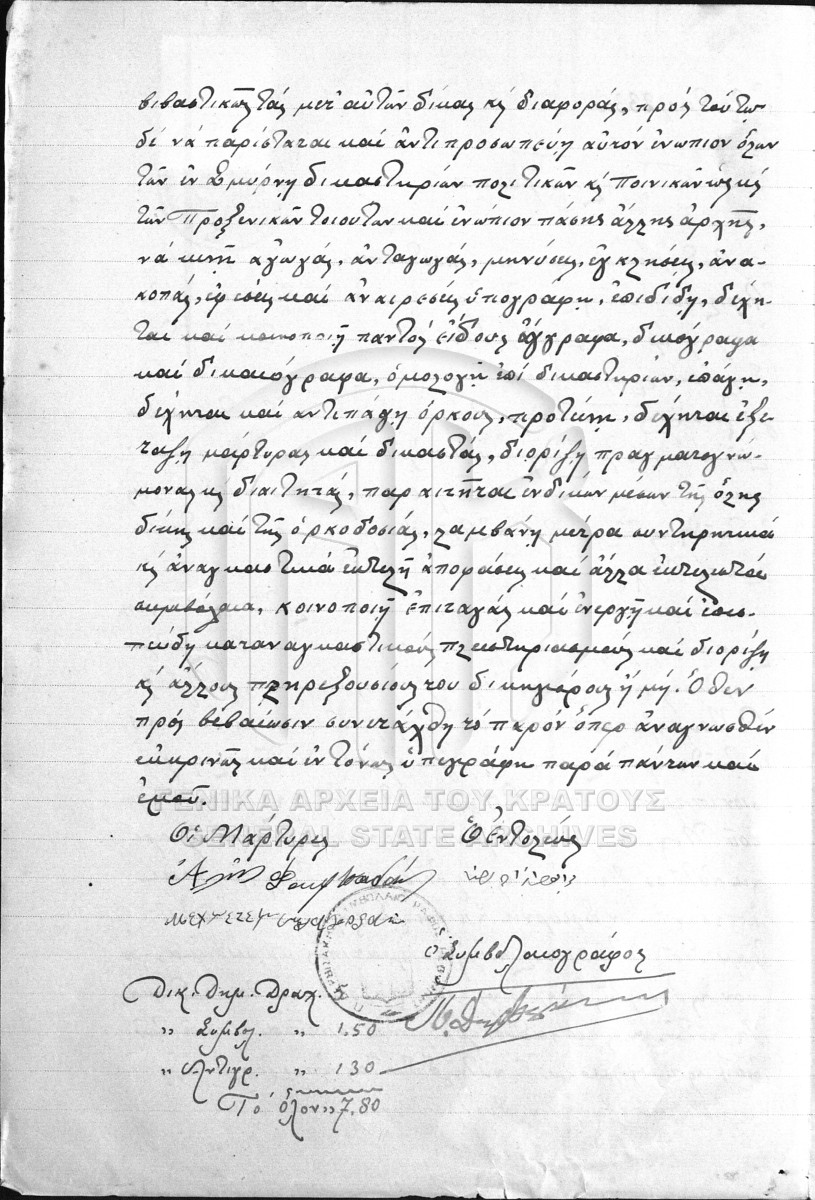 βιβαστικῶς τάς μετ' αὐτῶν δίκας κ̀ διαφοράς, πρός τοῦτο
δέ νά παρίσταται καί ἀντιπροσωπεύῃ αὐτόν ἐνώπιον ὅλων
τῶν ἐν Σμύρνῃ δικαστηρίων πολιτικῶν κ̀ ποινικῶν ὡς κ̀
τῶν Προξενικῶν τοιούτων καί ἐνώπιον πάσης ἄλλης ἀρχῆς,
νά κινῇ ἀγωγάς, ἀνταγωγάς, μηνύσεις, ἐγκλήσεις, ἀνα-
κοπάς, ἐφέσεις καί ἀναιρέσεις ὑπογράφῃ, ἐπιδίδῃ, δέχη-
ται καί κοινοποιῇ παντός εἴδους ἔγγραφα, δικόγραφα
καί δικαιόγραφα, ὁμολογῇ ἐπί δικαστηρίων, ἐπάγῃ,
δέχηται καί αντιπάγῃ όρκους, προτείνῃ, δέχηται ἐξε-
τάσῃ μάρτυρας καί δικαστάς, διορίζῃ πραγματογνώ-
μονας κ̀ διαιτητάς, παραιτῆται ἐνδίκων μέσων τῆς ὅλης
δίκης καί τῆς ὁρκοδοσίας, λαμβάνῃ μέτρα συντηρητικά
κ̀ ἀναγκαστικά ἐκτελῇ ἀποφάσεις καί ἄλλα ἐκτελεστά
συμβόλαια, κοινοποιῇ ἐπιταγάς καί ἐνεργῇ καί ἐπισ-
πεύδῃ καταναγκαστικούς πλειστηριασμούς καί διορίζῃ
κ̀ ἄλλους πληρεξουσίους του δικηγόρους ἤ μή. Ὅθεν
πρός βεβαίωσιν συνετάχθη τό παρόν ὅπερ ἀναγνωσθέν
εὐκρινῶς καί ἐντόνως ὑπεγράφη παρά πάντων καί
ἐμοῦ.
ΓΕΝΙΚΑ ΑΡΧΕΙΑ ΤΟΥ ΚΡΑΤΟΥΣ
GENERAL STATE ARCHIVES
Οἱ Μάρτυρες Ὁ Ἐντολεύς
ὁ Συμβολαιογράφος
Δικ. Δημ. Δραχ.
" Συμβολ. " 1.50
" Ἀντιγρ. " 1 30
Τό ὅλον " 7.80